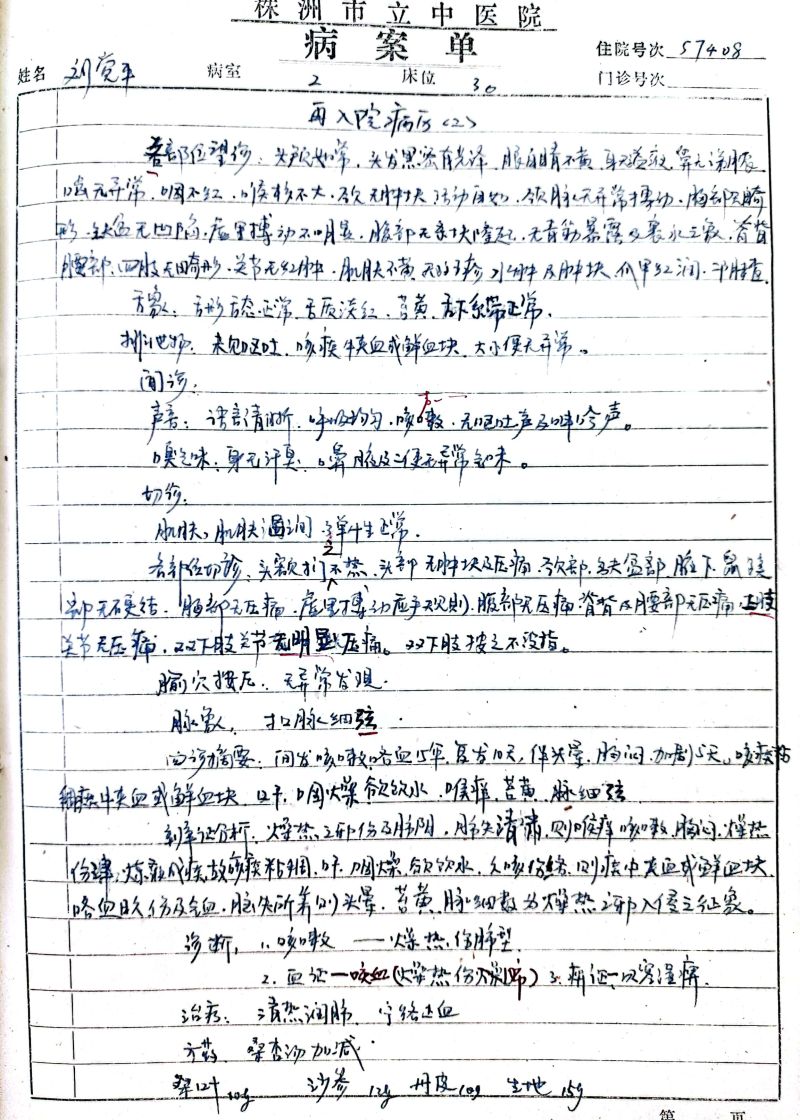 株洲市立中医院
病案单
住院号次 57408
姓名 刘党平 病室 2 床位 30 门诊号次
再入院病历<2>
各部位望诊：头颅如常，头发黑密有光泽，眼白睛不黄，耳无溢脓，鼻无涕脓，
口唇无异常，咽不红，喉核不大，颈无肿块活动自如，颈脉无异常搏动，胸部无畸
形，缺盆无凹陷，虚里搏动不明显，腹部无积块隆起，无青筋暴露及裹水之象，脊背
腰部、四肢无畸形，关节无红肿，肌肤不黄，无疹、水肿及肿块，爪甲红润，二阴未查。
舌象：舌形舌态正常，舌质淡红，苔黄，舌下系带正常。
排泄物：未见呕吐，咳痰中夹血或鲜血块，大小便无异常。
闻诊：
声音：语言清晰，呼吸均匀，咳嗽声，无呕吐声及呻吟声。
嗅气味：身无汗臭，口鼻腋及二便无异常气味。
切诊：
肌肤：肌肤温润 弹性正常。
各部位切诊：头额扪之不热，头部无肿块及压痛，颈部、缺盆部、腋下、鼠蹊
部无硬结，胸部无压痛，虚里搏动应手规则，腹部无压痛，脊背及腰部无压痛，上肢
关节无压痛，双下肢关节无明显压痛。双下肢按之不没指。
腧穴按压：无异常发现。
脉象：扣脉细弦
四诊摘要：间发咳嗽咯血15年，复发10天，伴头晕，胸闷，加剧5天。咳痰粘
稠痰中夹血或鲜血块，口干，咽燥欲饮水，喉痒，苔黄，脉细弦
辨证分析：燥热之邪伤及肺阴，肺失清肃，则喉痒咳嗽，胸闷，燥热
伤津，炼液成痰，故咳痰粘稠，口干，咽燥，欲饮水，久咳伤络，则痰中夹血或鲜血块，
咯血日久伤及气血，脑失所养则头晕，苔黄，脉细数为燥热之邪入侵之征象。
诊断：1. 咳嗽 —— 燥热伤肺型
2. 血证—咳血（燥热伤肺） 3. 痹证—风寒湿痹
治疗：清热润肺，宁络止血
方药：桑杏汤加减
桑叶10g 沙参12g 丹皮10g 生地15g
第 页